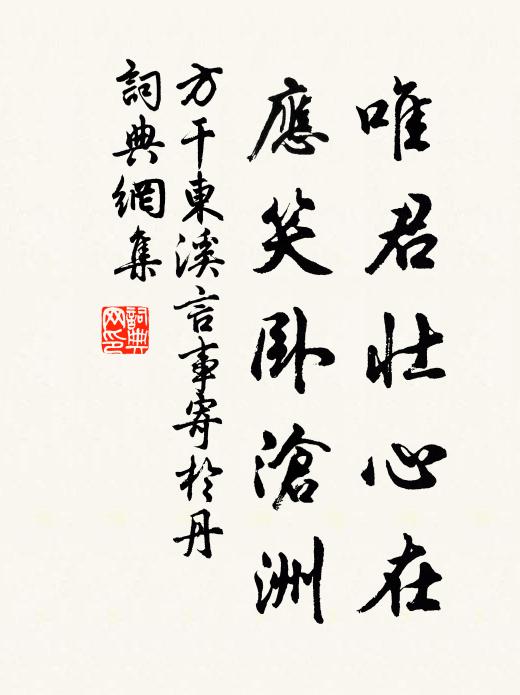 唯君壯心在
應笑臥滄洲
方干東溪言事寄於丹
詞典網集
詞典
网印